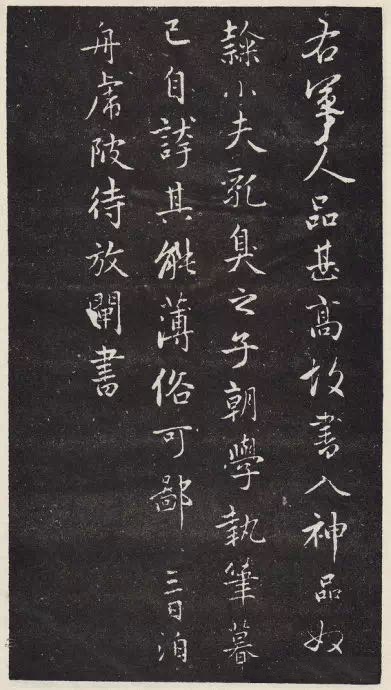 右軍人品甚高故書入神品奴
隸小夫乳臭之子朝學執筆暮
已自誇其能薄俗可鄙 三日泊
舟虎陂待放閘書